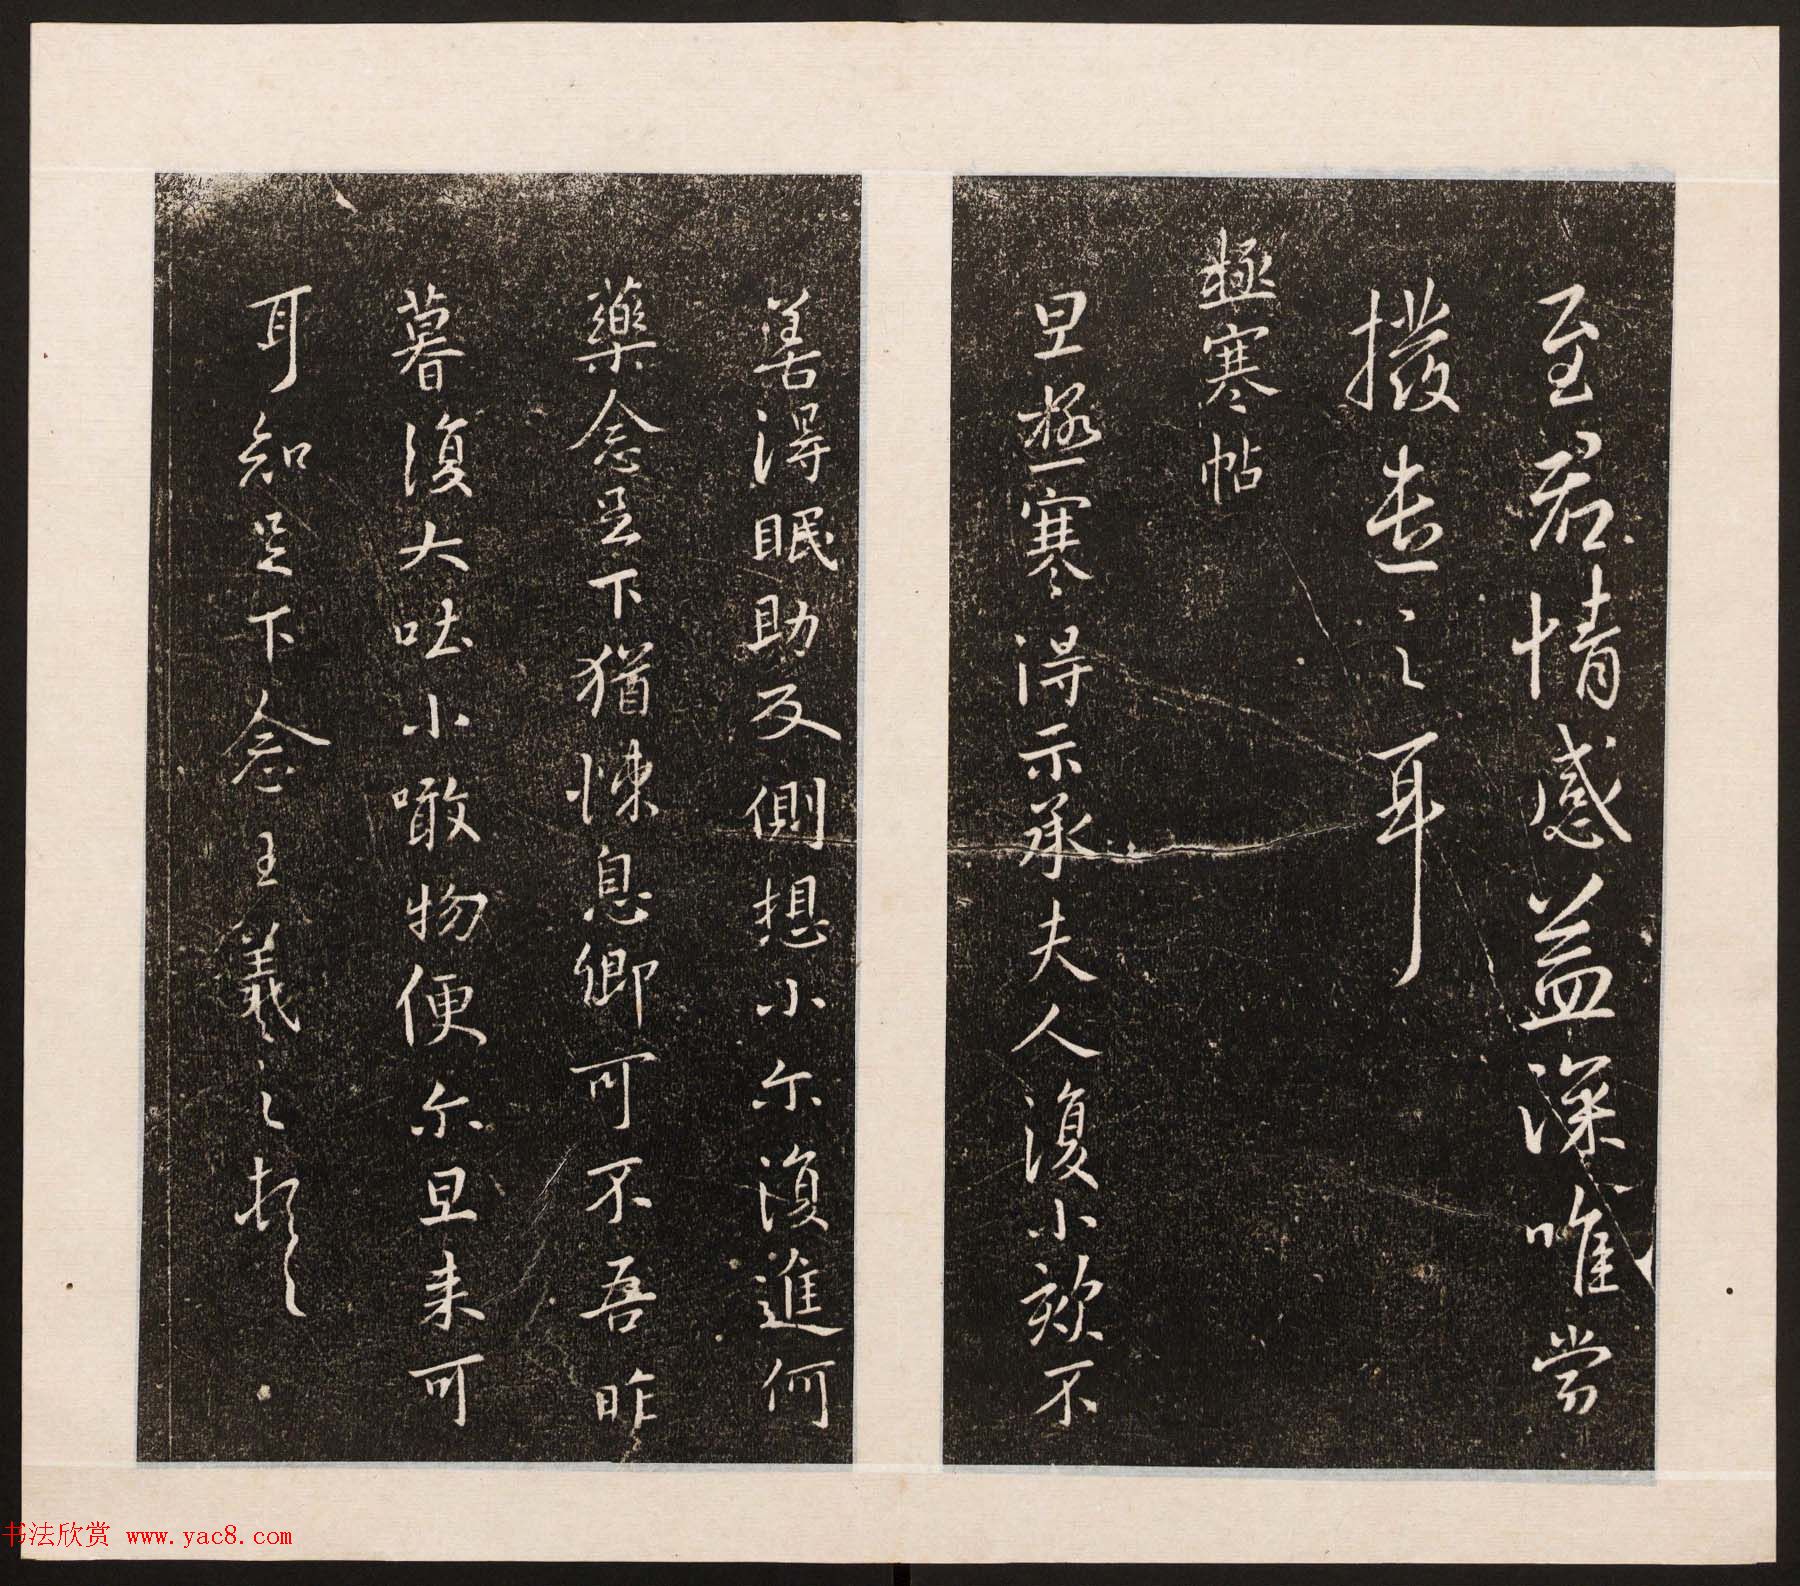 至君情感益深唯當
撥遣之耳
極寒帖
旦極寒得示承夫人復小欬不
善得眠助反側想小尔復進何
藥念足下猶悚息卿可不吾昨
暮復大吐小噉物便尔旦来可
耳知足下念王羲之頓
书法欣赏 www.yac8.com